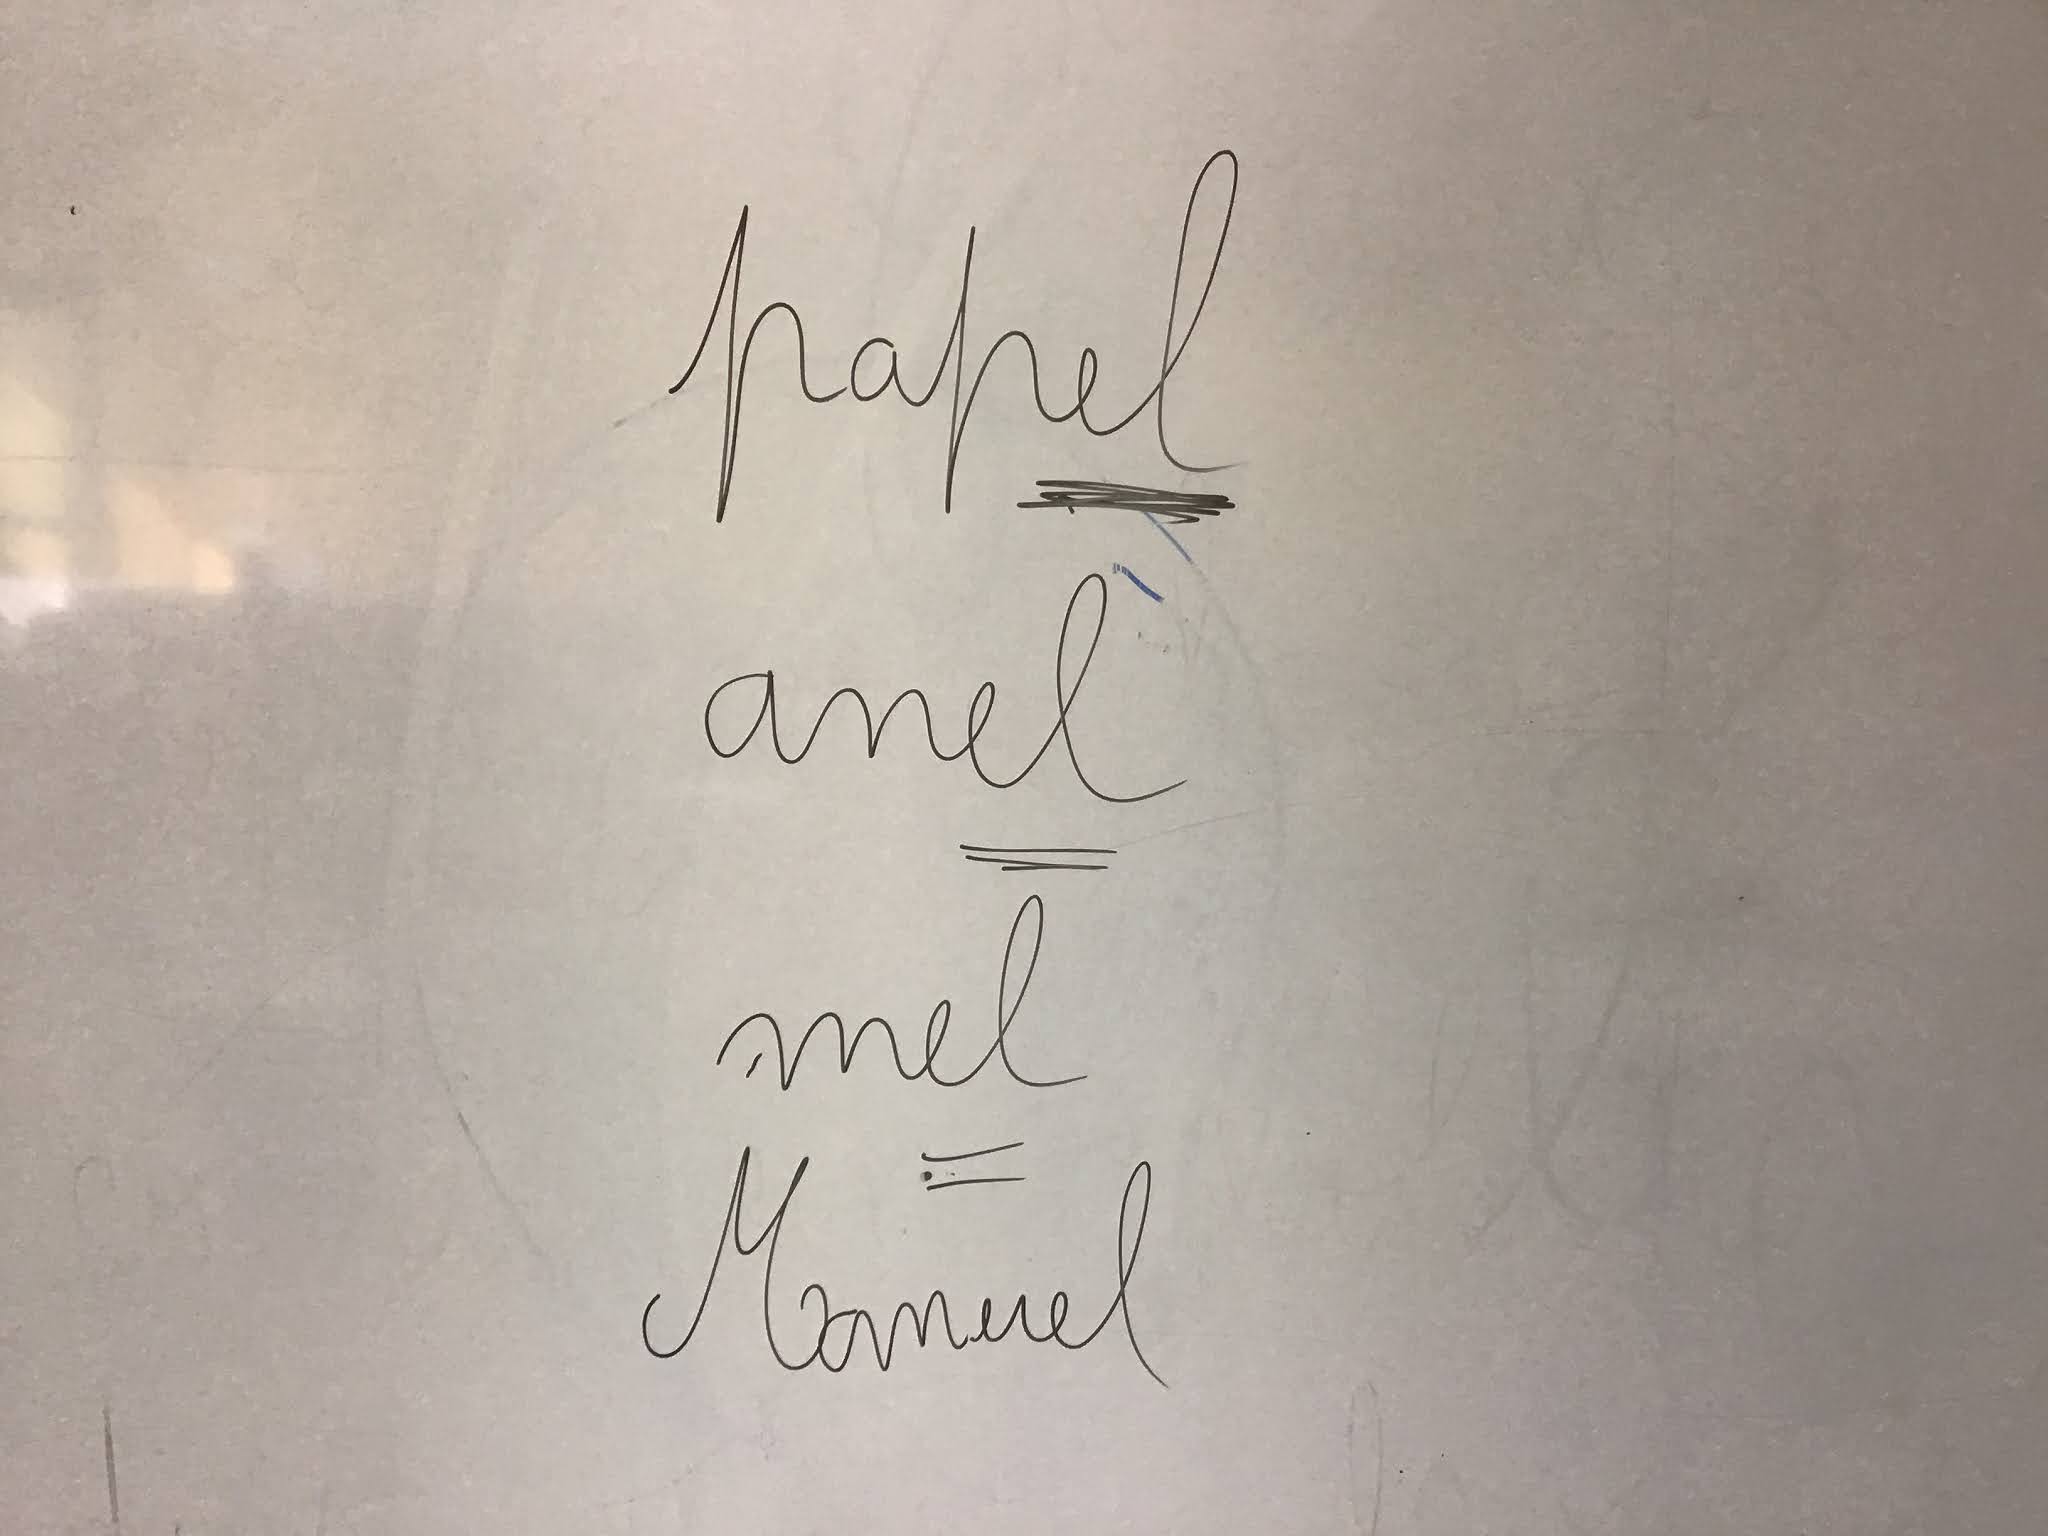 papel
anel
mel
Manuel